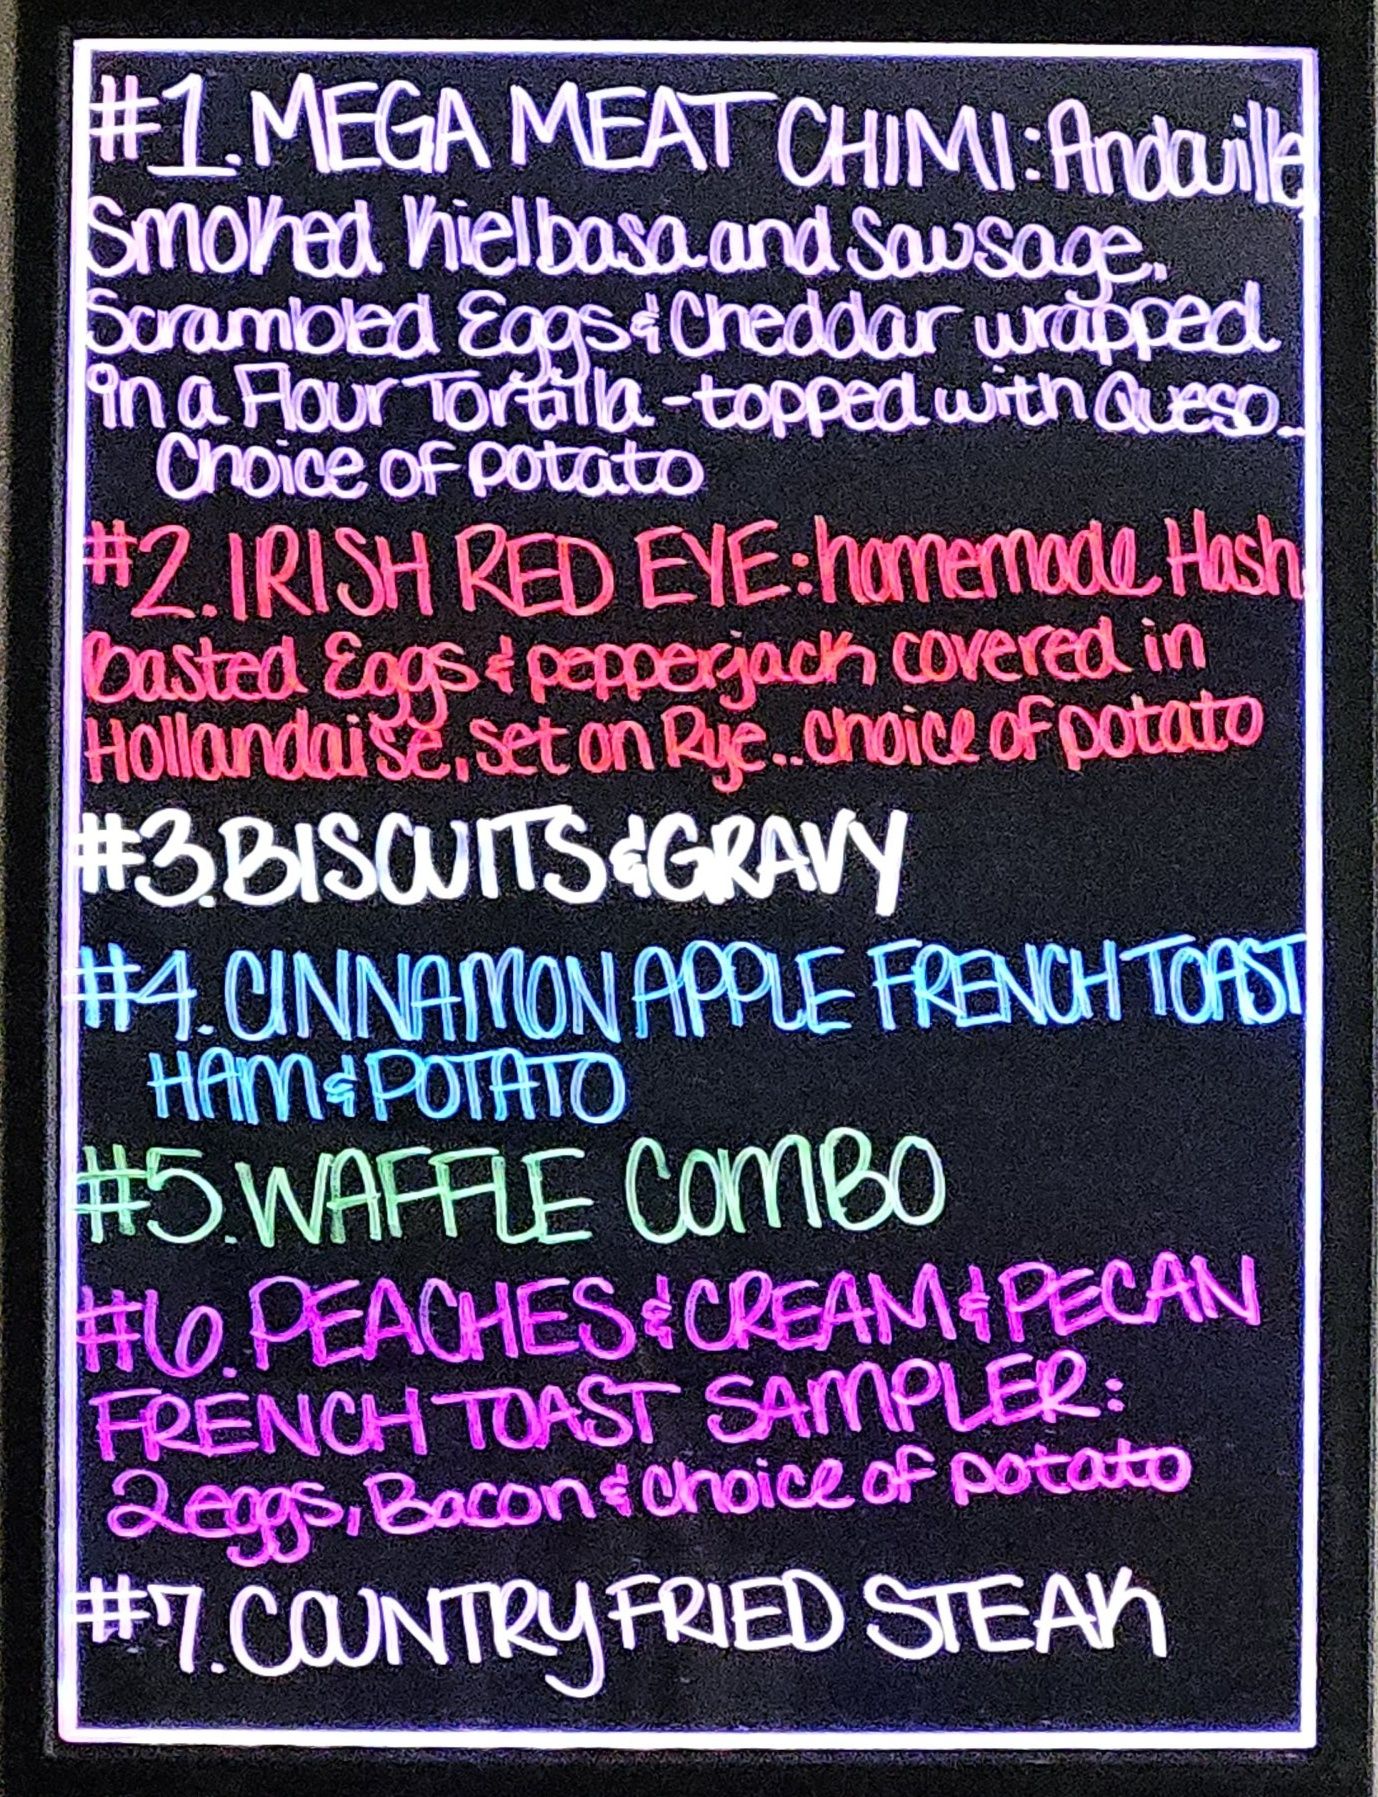 #1. MEGA MEAT CHIMI: Andouille,
Smoked Kielbasa and Sausage.
Scrambled Eggs & Cheddar wrapped
in a Flour Tortilla - topped with Queso..
Choice of potato
#2. IRISH RED EYE: homemade Hash,
basted Eggs & pepperjack covered in
Hollandaise, set on Rye.. choice of potato
#3. BISCUITS & GRAVY
#4. CINNAMON APPLE FRENCH TOAST
HAM & POTATO
#5. WAFFLE COMBO
#6. PEACHES & CREAM & PECAN
FRENCH TOAST SAMPLER:
2 eggs, Bacon & choice of potato
#7. COUNTRY FRIED STEAK